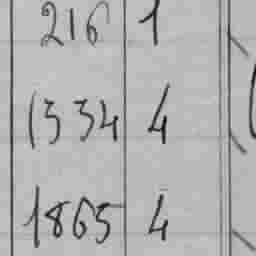 216 1
1334 4
1865 4